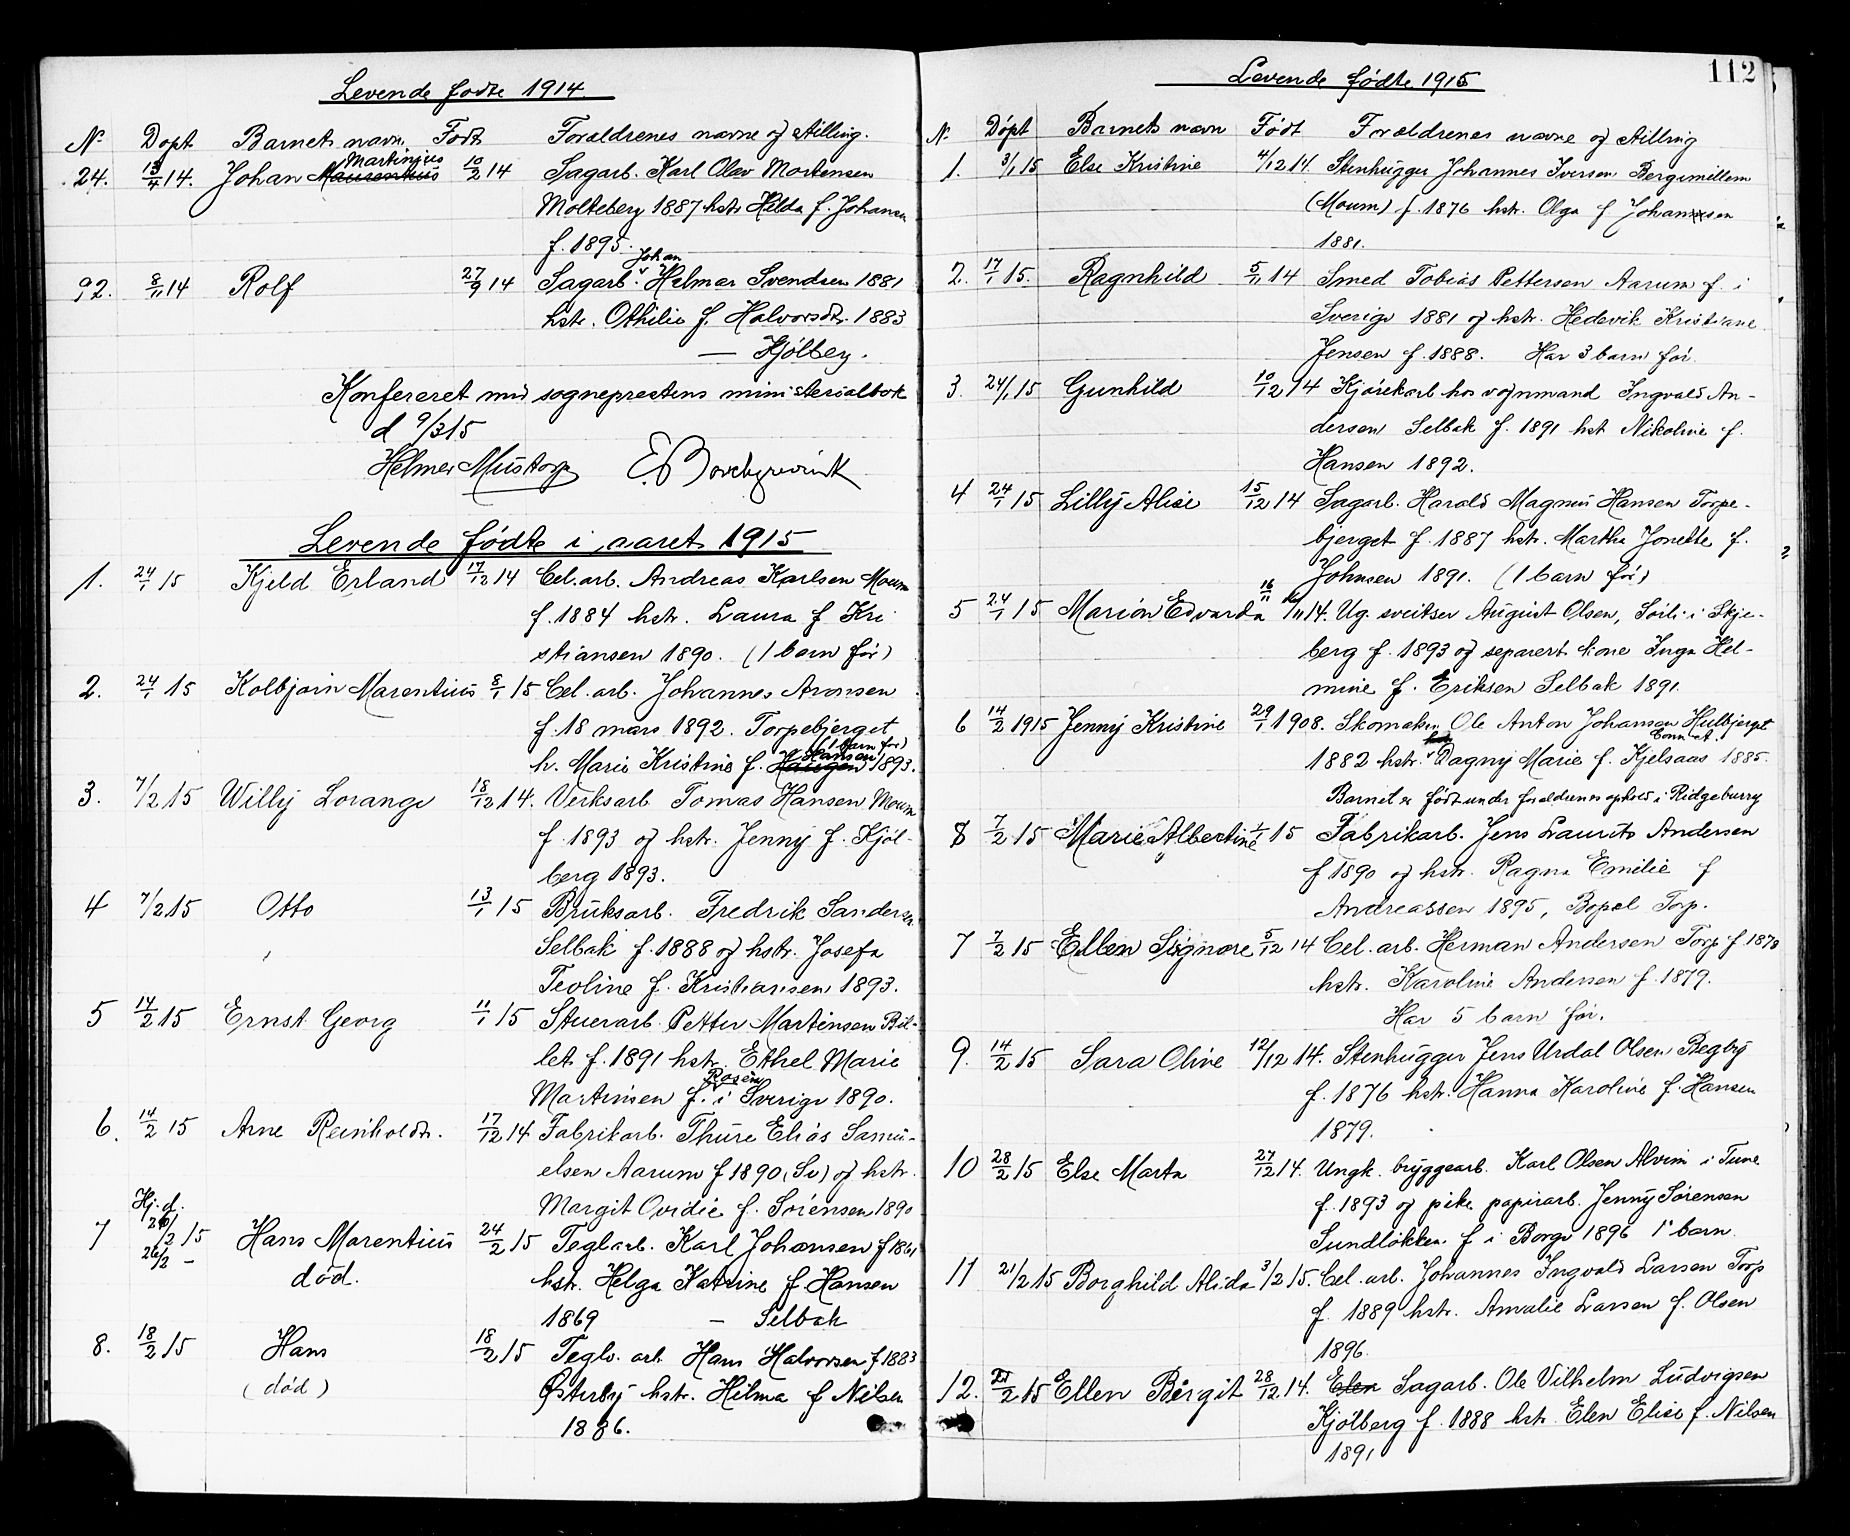 Levende fødte 1914.
N. Døpt Barnets navn. Født Forældrenes navne og stilling.
24. 13/4 14. Johan Martinius 10/2 14 Sagarb. Karl Olav Mortensen
Molteberg 1887 hstr. Hilda f. Johansen
f. 1895.
92. 8/11 14 Rolf 27/9 14 Sagarb. Johan Helmer Svendsen 1881
hstr. Othilie f. Halvorsdtr. 1883
— Kjølberg.
Konfereret med sogneprestens ministerialbok
d 9/3 15
Helmer Mustorp E. Borchgrevink
Levende fødte i aaret 1915
1. 24/1 15 Kjeld Erland 17/12 14 Cel. arb. Andreas Karlsen Moum
f. 1884 hstr. Laura f. Kri
stiansen 1890. (1 barn før)
2. 24/1 15 Kolbjørn Marentius 8/1 15 Cel. arb. Johannes Aronsen
f. 18 mars 1892. Torpebjerget
(1 barn før)
h. Marie Kristine f. Haugen Hansen 1893.
3. 7/2 15 Willy Lorang 18/12 14. Verksarb. Tomas Hansen Moum
f. 1893 og hstr. Jenny f. Kjøl-
berg 1893.
4 7/2 15 Otto 13/1 15 Bruksarb. Fredrik Sandersen
Selbak f. 1888 og hstr. Josefa
Teoline f. Kristiansen 1893.
5 14/2 15 Ernst Georg 11/1 15 Stuerarb. Petter Martinsen Bil-
let f. 1891 hstr. Ethel Marie
Martinsen f. Rosèn i Sverige 1890.
6. 14/2 15 Arne Reinholdt. 17/12 14 Fabrikarb. Thure Elias Samu-
elsen Aarum f 1890 (Sv) og hstr.
Margit Ovidie f. Sørensen 1890
Hj. d.
7 26/2 15 Hans Marentius 24/2 15 Teglarb. Karl Johansen f 1861
26/2 – død. hstr. Helga Katrine f. Hansen
1869 — Selbak
8. 18/2 15 Hans 18/2 15 Teglv. arb. Hans Halvorsen f 1883
(død) Østerby hstr. Hilma f Nilsen
1886.
112
Levende fødte 1915
N. Døpt Barnets navn Født Forældrenes navne og stilling
1. 3/1 15 Else Kristine 4/12 14. Stenhugger Johannes Iversen Bergsmellem
(Moum) f. 1876 hstr. Olga f Johansen
1881.
2. 17/1 15. Ragnhild 5/11 14 Smed Tobias Pettersen Aarum f. i
Sverige 1881 og hstr. Hedevik Kristiane
Jensen f. 1888. Har 3 barn før.
3. 24/1 15 Gunhild 10/12 14 Kjørekarl hos vognmand Ingvald An-
dersen Selbak f. 1891 hst Nikoline f.
Hansen 1892.
4 24/1 15 Lilly Alise 15/12 14 Sagarb. Harald Magnus Hansen Torpe-
bjerget f. 1887 hstr. Martha Jonette f.
Johnsen 1891. (1 barn før)
5 24/1 15 Marion Edvarda 16/11 14. Ug. sveitser August Olsen, Soli i Skje-
berg f. 1893 og separert kone Inga Hel-
mine f. Eriksen Selbak 1891.
6 14/2 1915 Jenny Kristine 29/1 1908. Skomaker Ole Anton Johansen Hulbjerget
1882 hstr. Dagny Marie f. Kjelsaas 1885.
Connct.
Barnet er født under foreldrenes ophold i Ridgeburry
8 7/2 15 Marie Albertine 1/1 15 Fabrikarb. Jens Laurits Andersen
f 1890 og hstr. Ragna Emilie f
Andreassen 1895, Bopæl Torp.
7 7/2 15 Ellen Signore 5/12 14 Cel. arb. Herman Andersen Torp f. 1878
hstr. Karoline Andersen f. 1879.
Har 5 barn før.
9. 14/2 15 Sara Oline 12/12 14. Stenhugger Jens Urdal Olsen Begby
f. 1876 hstr. Hanna Karoline f. Hansen
1879.
10 28/2 15 Else Marta 27/12 14. Ungk. bryggearb. Karl Olsen Alvim i Tune
f. 1893 og pike papirarb. Jenny Sørensen
Sundløkken f i Borge 1896 1' barn
11 21/2 15 Borghild Alida 3/2 15. Cel. arb. Johannes Ingvald Larsen Torp
f. 1889 hstr. Amalie Larsen f. Olsen
1896.
12. 21/2 15 Ellen Birgit 28/12 14. Elen Sagarb. Ole Vilhelm Ludvigsen
Kjølberg f. 1888 hstr. Elen Elise f. Nilsen
1891